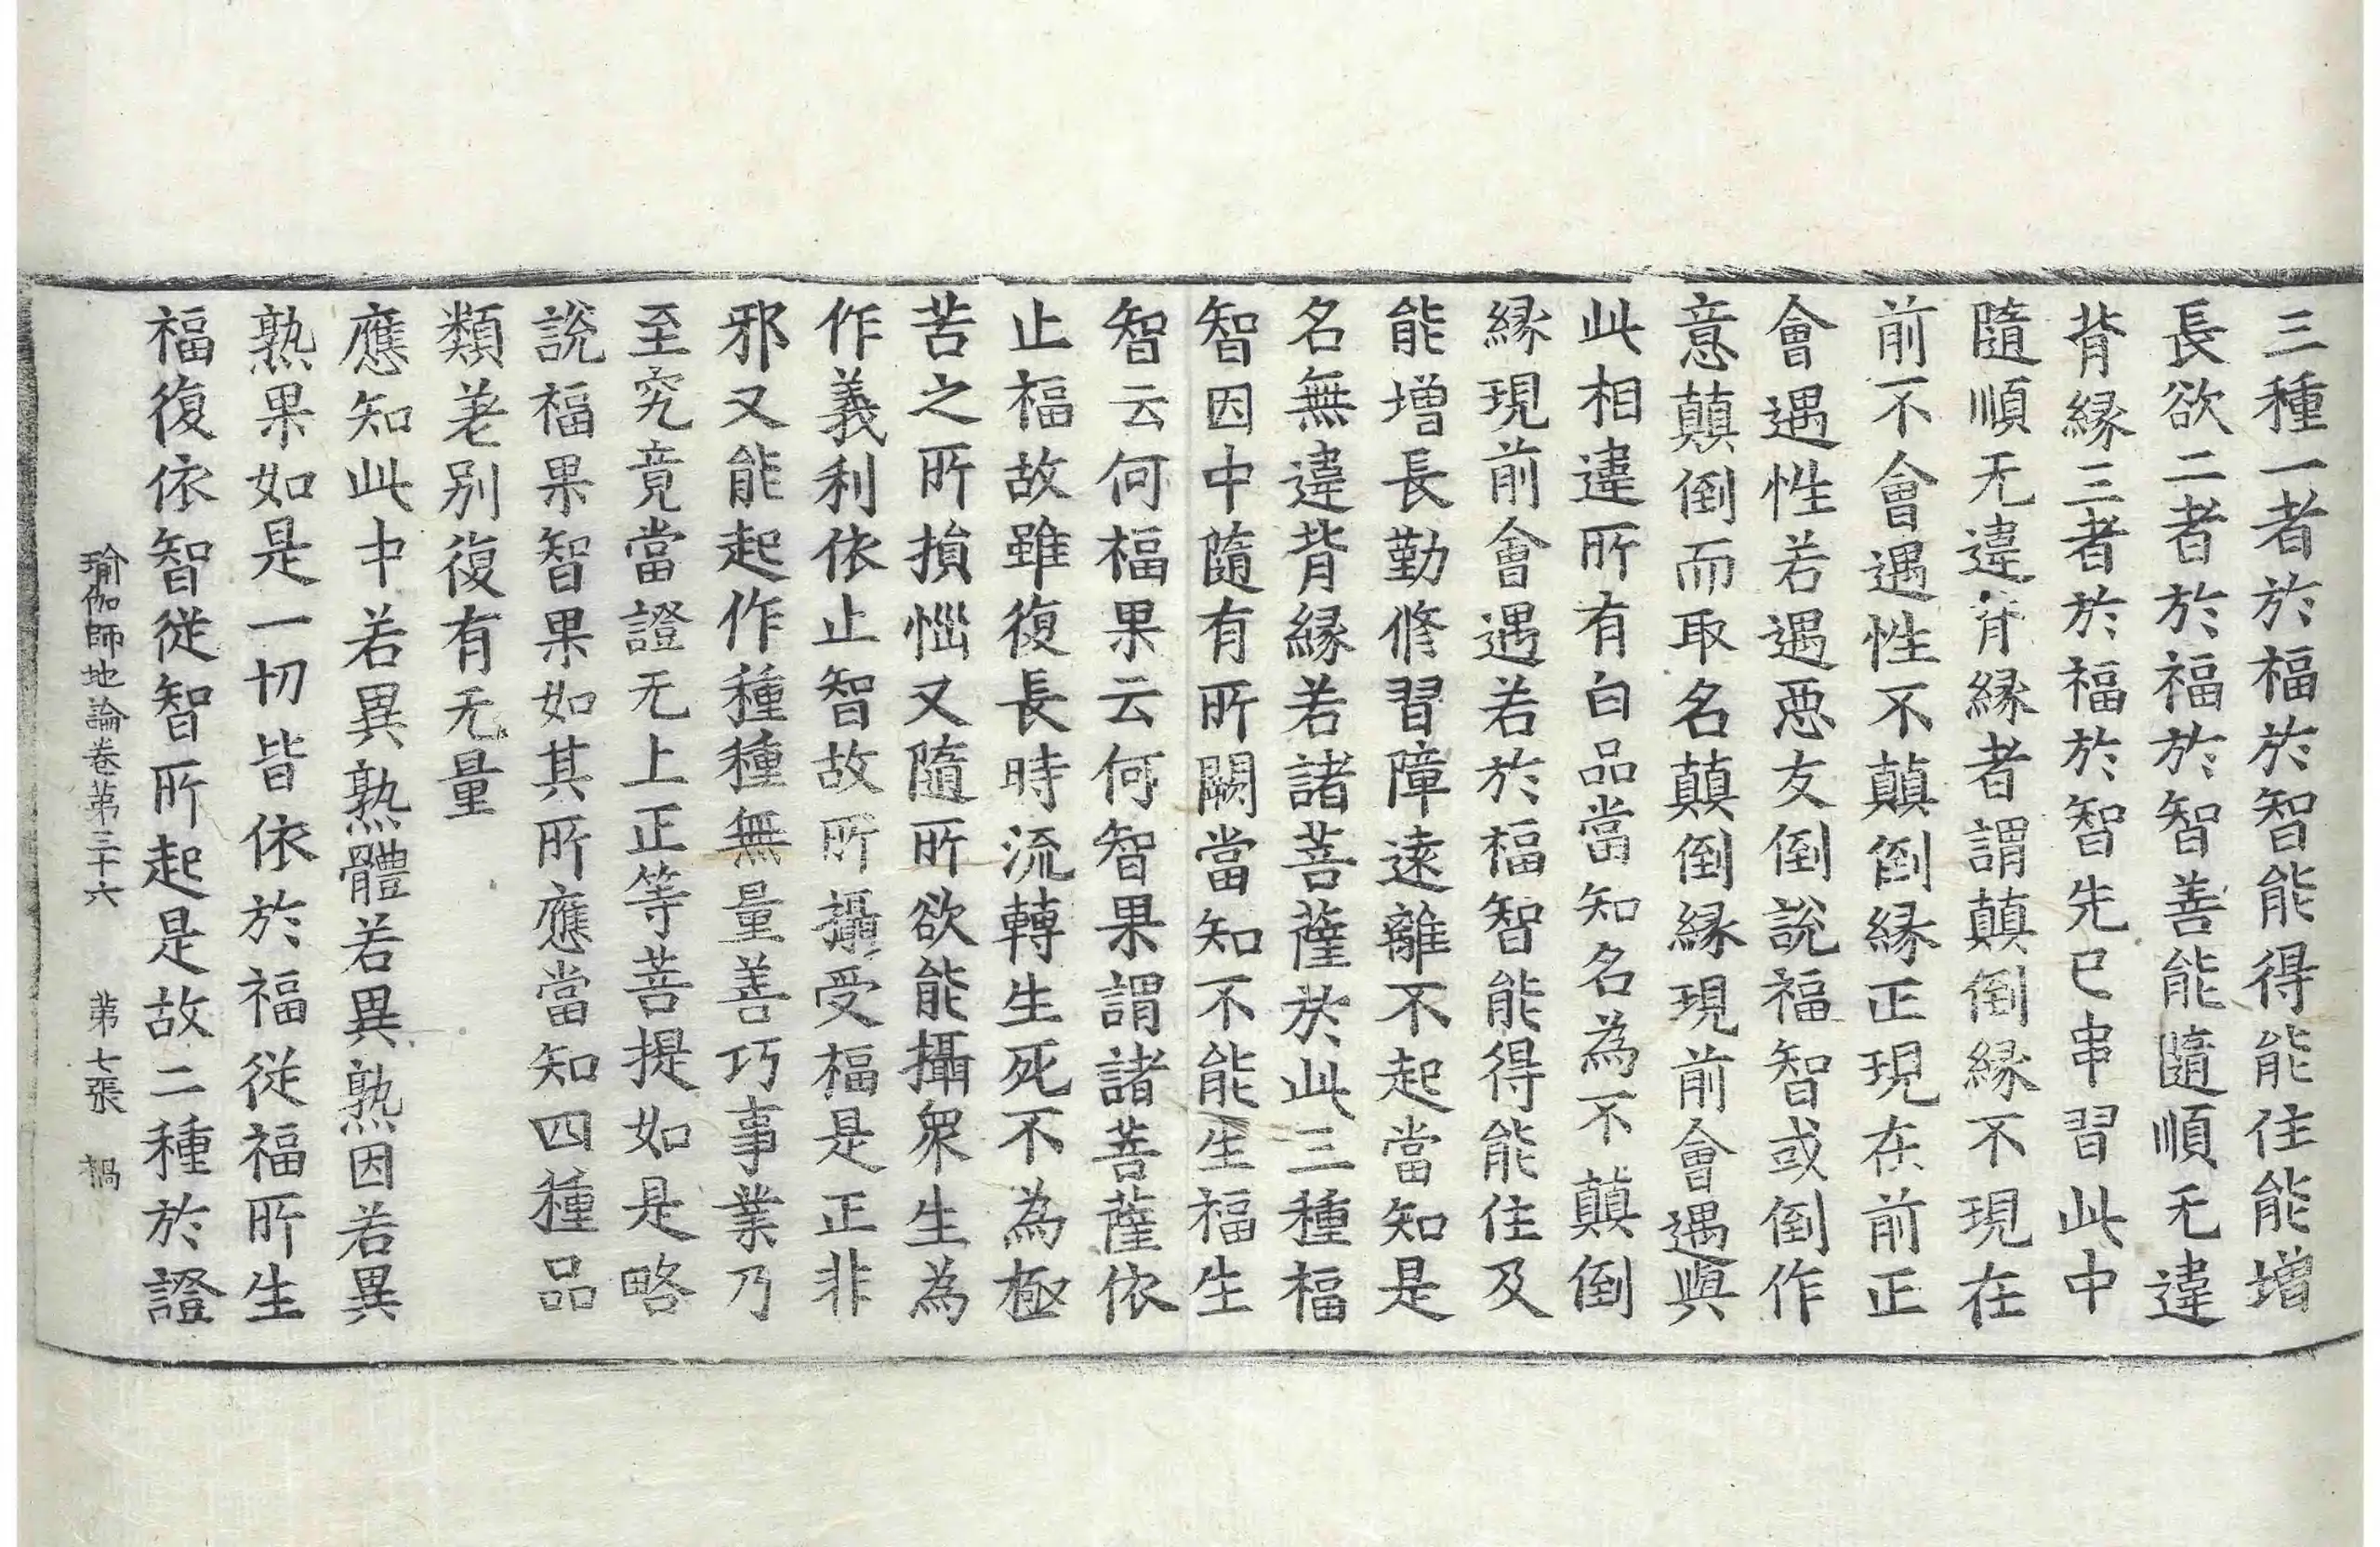 三種一者於福於智能得能住能增
長欲二者於福於智善能隨順无違
背縁三者於福於智先已串習此中
隨順无違背縁者謂顛倒縁不現在
前不會遇性不顛倒縁正現在前正
會遇性若遇惡友倒說福智或倒作
意顛倒而取名顛倒縁現前會遇與
此相違所有白品當知名為不顛倒
縁現前會遇若於福智能得能住及
能増長勤修習障遠離不起當知是
名無違背縁若諸菩薩於此三種福
智因中隨有所闕當知不能生福生
智云何福果云何智果謂諸菩薩依
止福故雖復長時流轉生死不為極
苦之所損惱又隨所欲能攝衆生為
作義利依止智故所攝受福是正非
邪又能起作種種無量善巧事業乃
至究竟當證无上正等菩提如是略
說福果智果如其所應當知四種品
類差別復有无量
應知此中若異熟體若異熟因若異
熟果如是一切皆依於福從福所生
福復依智從智所起是故二種於證
瑜伽師地論卷第三十六　第七張　禍